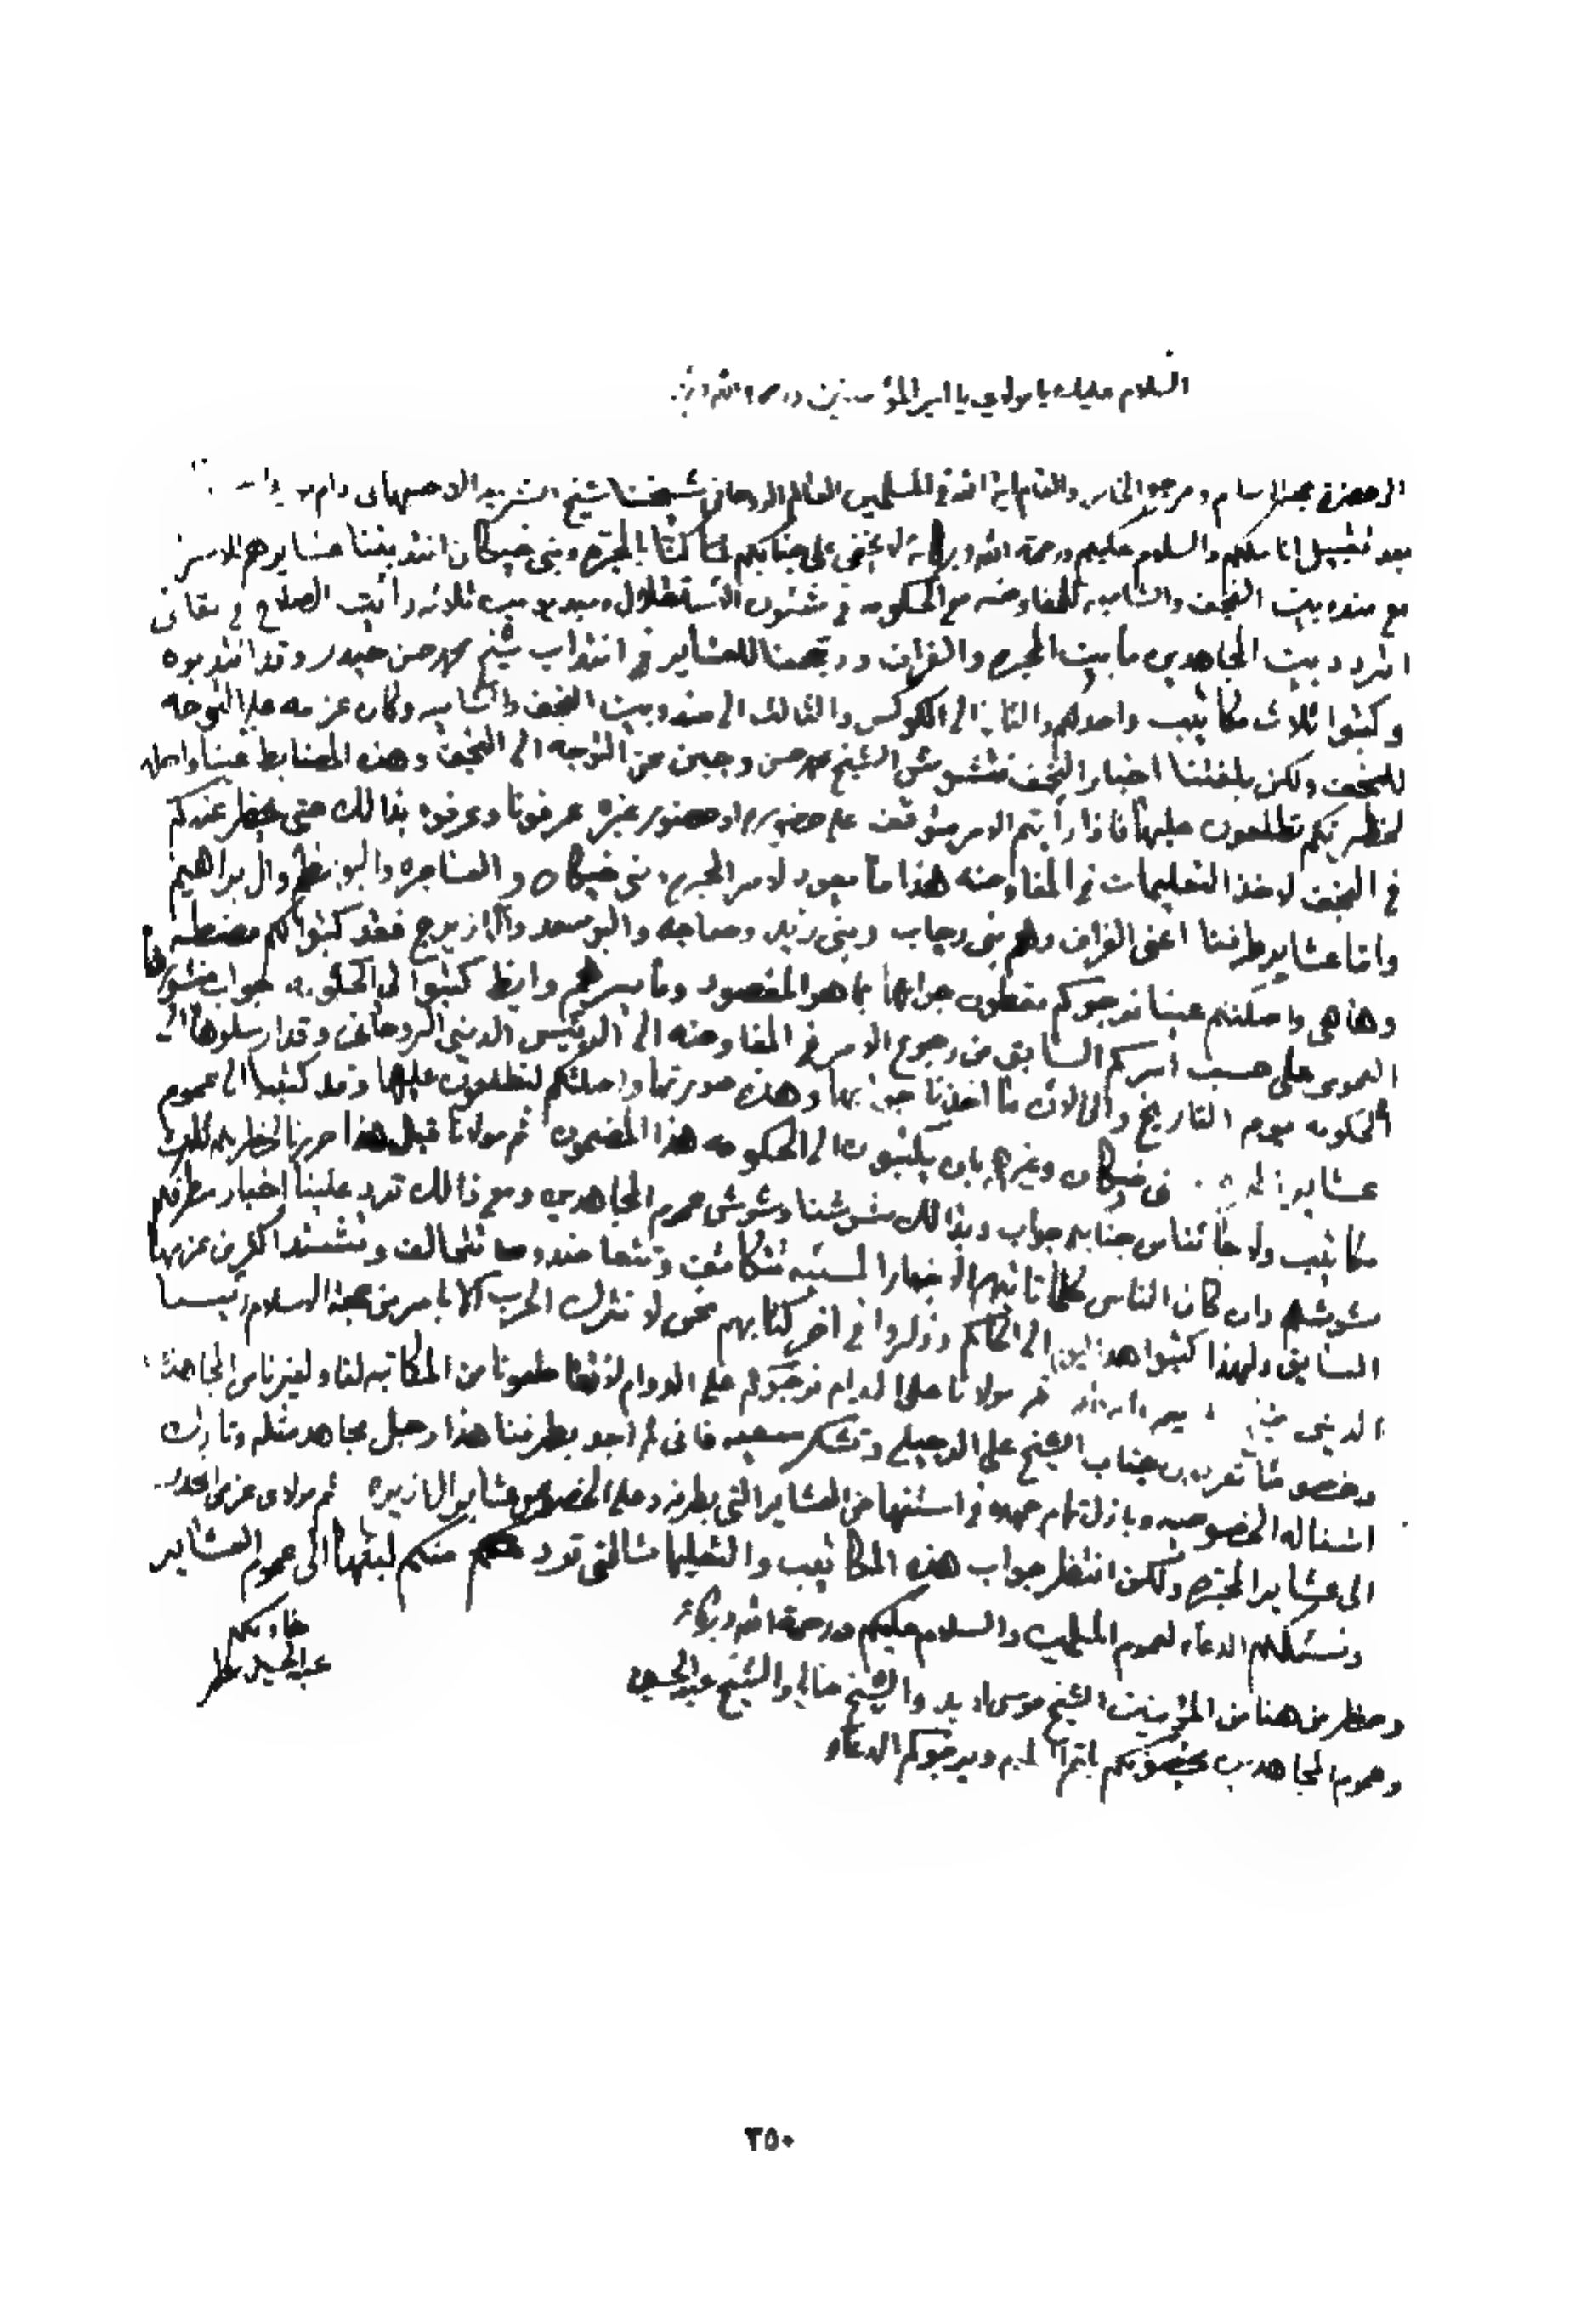 السلام عليك يا مولاي يا امير المؤمنين ورحمة الله
الى حضرة حجة الاسلام ومرجع الخاص والعام اية الله في المسلمين العالم الروحاني شيخنا شيخ الشريعه الاصبهاني دام
بعد تقبيل اناملكم والسلام عليكم ورحمة الله وبركاته لا يخفى على جنابكم لما كنا بالمجره وبني خيكان انتدبتنا عشايرهم
مع مندوبين النجف والشاميه للمفاوضه مع الحكومه في شئون الاستقلال وبعد يومين ثلاثه رأيت الصلاح في بقائي
اتردد بين المجاهدين ما بين المجره والغراف ورجحنا للعشاير في انتداب شيخ محمد حسن حيدر وقد انتدبوه
وكتبوا ثلاث مكاتيب واحد لكم والثاني الى الكوكس والثالث الى مندوبين النجف والشاميه وكان عزمه على التوجه
للنجف ولكن بلغتنا اخبار النجف فتشوش الشيخ محمد حسن وجبن عن التوجه الى النجف وهذه المضابط عينا واصله
لحظرتكم تطلعون عليها فاذا رأيتم الامر متوقف على حضوره او حضور غيره عرفونا وعرفوه بذالك حتى يحظر عندكم
في النجف لاخذ التعليمات في المفاوضه هذا ما يعود لامر المجره وبني خيكان والعساجره والبو نظر وال ابراهيم
واما عشاير طرفنا اعني الغراف وهم بني ركاب وبني زيد وصاجه والبو سعد والازيرج فقد كتبوا لكم مضبطه
وها هي واصلتكم عينا نرجوكم تعطون جوابها بما هو المقصود وما يسرهم وايظا كتبوا الى الحكومه جواب منشورها
العمومي على حسب امركم السابق من رجوع الامر في المفاوضه الى الرئيس الديني الروحاني وقد ارسلوها الى
الحكومه يوم التاريخ والى الان ما اخذنا جوابها وهذه صورتها واصلتكم لتطلعون عليها وقد كتبنا الى عموم
عشاير خيكان وغيرهم بان يكتبون الى الحكومه هذا المضمون ثم مولانا قبل هذا حررنا لحظرتكم ثلاث
مكاتيب ولا جائنا من جنابكم جواب وبذالك تشوشنا وتشوش عموم المجاهدين ومع ذالك ترد علينا اخبار من طرفكم
مشوشه وان كان الناس كلما تاتيهم الاخبار السيئه تتكاتف وتتعاضد وتتحالف وتشتد اكثر من عزمها
السابق ولهذا كتبوا الى الحاكم وذكروا في اخر كتابهم نحن لا نترك الحرب الا بامر من حجة الاسلام رئيسنا
الديني ثم مولانا على الدوام نرجوكم على الدوام لا تقاطعونا من المكاتبه لنا ولغيرنا من المجاهدين
وخصوصا تعريف جناب الشيخ علي الدجيلي وتشكر سعيه فاني لم اجد بطرفنا هذا رجل مجاهد مثله وتارك
اشغاله الخصوصيه وباذل تمام جهده في استنهاض العشاير التي بطرفه وعلى الخصوص عشاير الازيرج ثم مولاي عزمي
الى عشاير المجره ولكن انتظر جواب هذه المكاتيب والتعليمات التي ترد منكم لبثها الى عموم العشاير
ونسئلكم الدعاء لعموم المسلمين والسلام عليكم ورحمة الله وبركاته
خادمكم
عبد الحسين مطر
وحظر من هنا من المؤمنين الشيخ موسى والشيخ والشيخ عبد الحسين
وعموم المجاهدين يخصونكم باتم السلام ويرجوكم الدعاء
٢٥٠